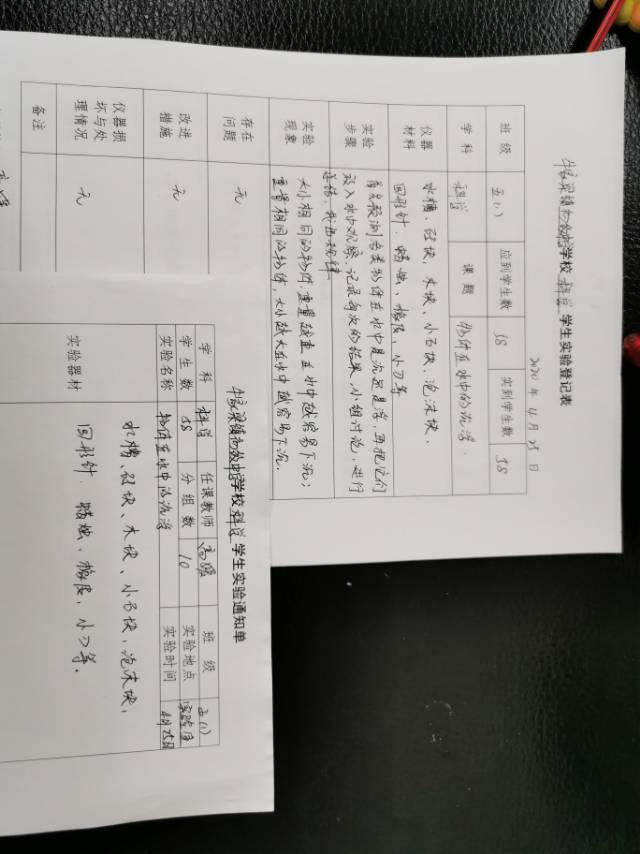 学校 科学 学生实验登记表
2020 年 4 月 25 日
班 级 五(1) 应到学生数 58 实到学生数 58
学 科 科学 课 题 物体在水中的沉浮.
仪器
材料
水槽、砖块、木块、小石块、泡沫块、
回形针、蜡烛、橡皮、小刀等
实验
步骤
首先预测各类物体在水中是沉还是浮,再把它们
放入水中观察,记录每次的结果,小组讨论,进行
总结,找出规律
实验
现象
大小相同的物体,重量越重在水中越容易下沉;
重量相同的物体,大小越大在水中越容易下沉.
存在
问题
无
改进
措施
无
仪器损
坏与处
理情况
无
备注
学校 科学 学生实验通知单
学 科 科学 任课教师 班 级 五(1)
学 生 数 58 分 组 数 10 实验地点 实验室
实验名称 物体在水中的沉浮 实验时间 4月25日
实验器材
水槽、砖块、木块、小石块、泡沫块、
回形针、蜡烛、橡皮、小刀等.